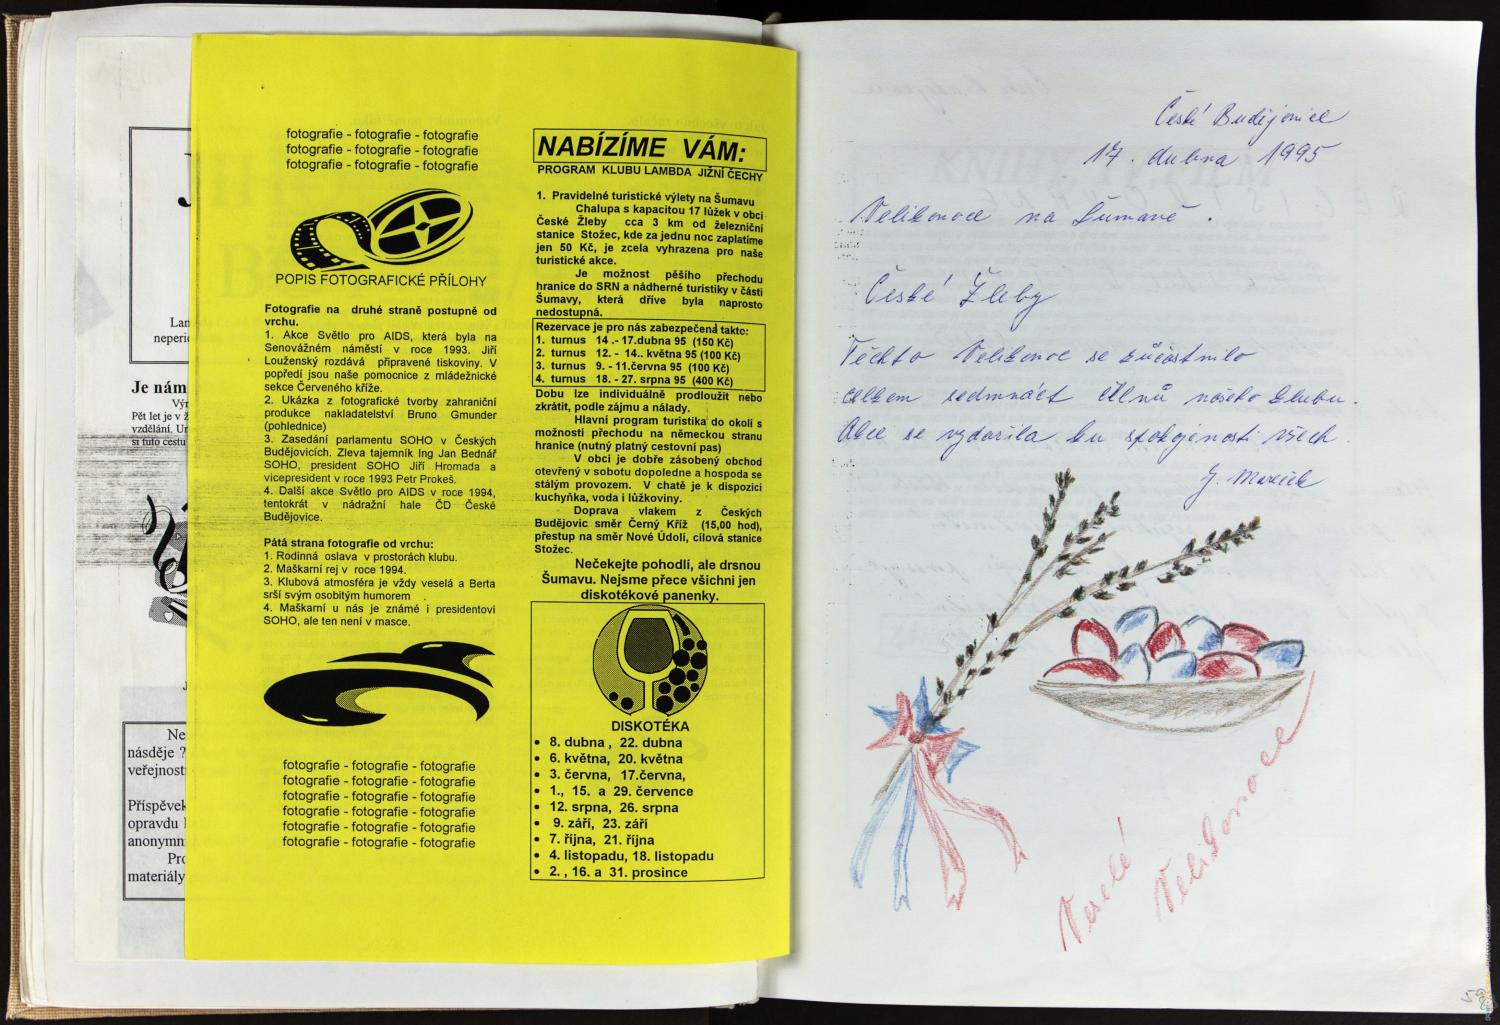 Lam
neperio
Je nám
Výr
Pět let je v ž
vzdělání. Ur
si tuto cestu
Ne
násděje ?
veřejnost
Příspěvek
opravdu l
anonymn
Pro
materiály
fotografie - fotografie - fotografie
fotografie - fotografie - fotografie
fotografie - fotografie - fotografie
POPIS FOTOGRAFICKÉ PŘÍLOHY
Fotografie na druhé straně postupně od
vrchu.
1. Akce Světlo pro AIDS, která byla na
Senovážném náměstí v roce 1993. Jiří
Louženský rozdává připravené tiskoviny. V
popředí jsou naše pomocnice z mládežnické
sekce Červeného kříže.
2. Ukázka z fotografické tvorby zahraniční
produkce nakladatelství Bruno Gmunder
(pohlednice)
3. Zasedání parlamentu SOHO v Českých
Budějovicích. Zleva tajemník Ing Jan Bednář
SOHO, president SOHO Jiří Hromada a
vicepresident v roce 1993 Petr Prokeš.
4. Další akce Světlo pro AIDS v roce 1994,
tentokrát v nádražní hale ČD České
Budějovice.
Pátá strana fotografie od vrchu:
1. Rodinná oslava v prostorách klubu.
2. Maškarní rej v roce 1994.
3. Klubová atmosféra je vždy veselá a Berta
srší svým osobitým humorem .
4. Maškarní u nás je známé i presidentovi
SOHO, ale ten není v masce.
fotografie - fotografie - fotografie
fotografie - fotografie - fotografie
fotografie - fotografie - fotografie
fotografie - fotografie - fotografie
fotografie - fotografie - fotografie
fotografie - fotografie - fotografie
NABÍZÍME VÁM:
PROGRAM KLUBU LAMBDA JIŽNÍ ČECHY
1. Pravidelné turistické výlety na Šumavu
Chalupa s kapacitou 17 lůžek v obci
České Žleby cca 3 km od železniční
stanice Stožec, kde za jednu noc zaplatíme
jen 50 Kč, je zcela vyhrazena pro naše
turistické akce.
Je možnost pěšího přechodu
hranice do SRN a nádherné turistiky v části
Šumavy, která dříve byla naprosto
nedostupná.
Rezervace je pro nás zabezpečená takto:
1. turnus 14 .- 17.dubna 95 (150 Kč)
2. turnus 12. - 14.. května 95 (100 Kč)
3. turnus 9. - 11.června 95 (100 Kč)
4. turnus 18. - 27. srpna 95 (400 Kč)
Dobu lze individuálně prodloužit nebo
zkrátit, podle zájmu a nálady.
Hlavní program turistika do okolí s
možností přechodu na německou stranu
hranice (nutný platný cestovní pas)
V obci je dobře zásobený obchod
otevřený v sobotu dopoledne a hospoda se
stálým provozem. V chatě je k dispozici
kuchyňka, voda i lůžkoviny.
Doprava vlakem z Českých
Budějovic směr Černý Kříž (15,00 hod),
přestup na směr Nové Údolí, cílová stanice
Stožec.
Nečekejte pohodlí, ale drsnou
Šumavu. Nejsme přece všichni jen
diskotékové panenky.
DISKOTÉKA
• 8. dubna , 22. dubna
• 6. května, 20. května
• 3. června, 17.června,
• 1., 15. a 29. července
• 12. srpna, 26. srpna
• 9. září, 23. září
• 7. října, 21. října
• 4. listopadu, 18. listopadu
• 2. , 16. a 31. prosince
České Budějovice
17. dubna 1995
Velikonoce na Šumavě.
České Žleby
Těchto Velikonoc se zúčastnilo
celkem sedmnáct členů našeho klubu.
Akce se vydařila ku spokojenosti všech
Veselé
Velikonoce